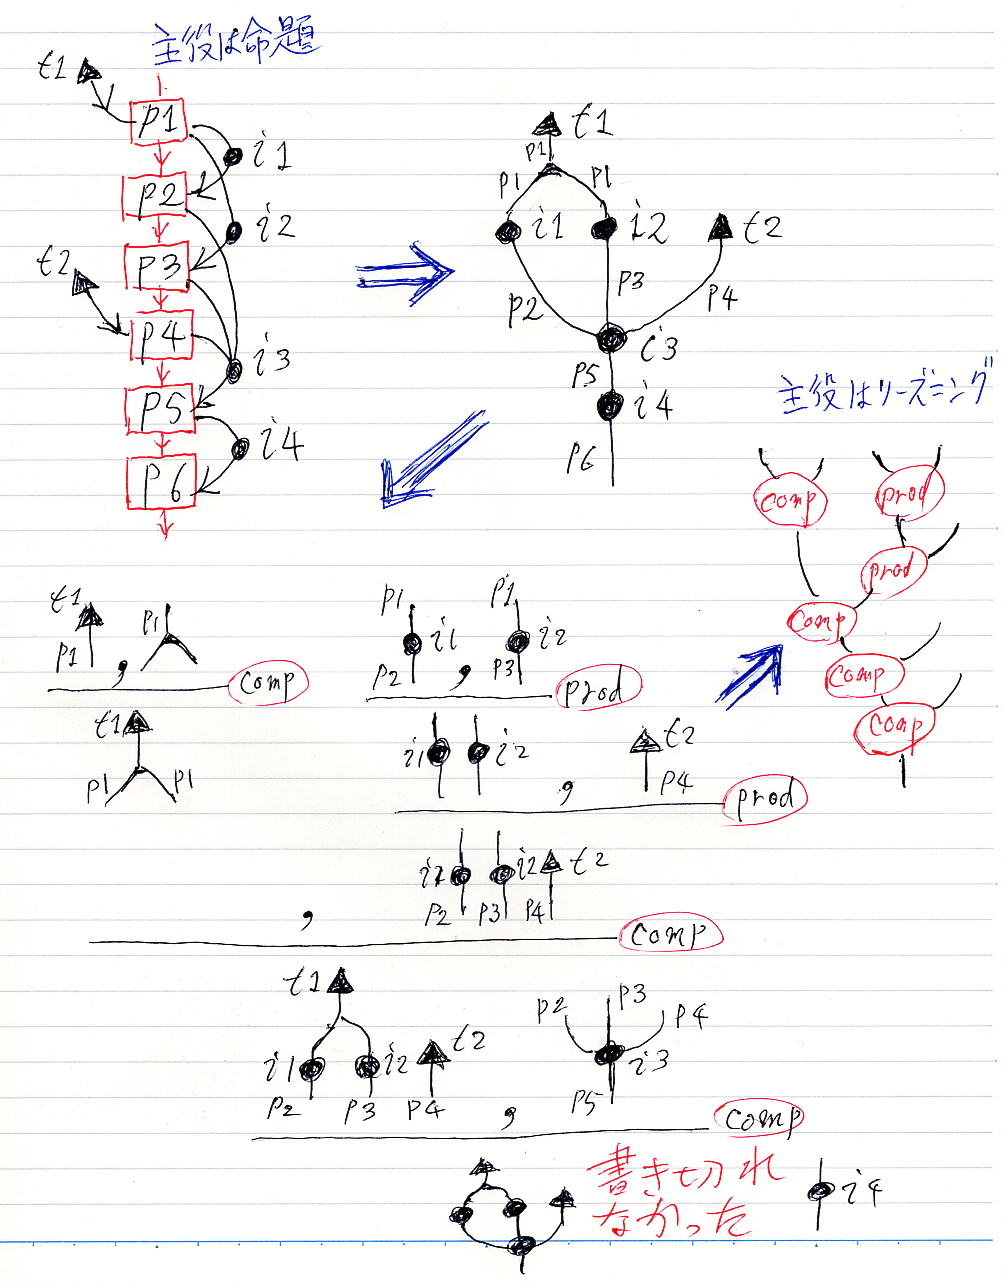 主役は命題
t1
p1
i1
p2
i2
t2
p3
p4
i3
p5
i4
p6
t1
p1
p1
p1
i1
i2
t2
p2
p3
p4
i3
p5
i4
p6
主役はリーズニング
comp
prod
prod
comp
comp
comp
t1
p1
,
p1
comp
t1
p1
p1
p1
i1
p2
,
p1
i2
p3
prod
i1
i2
,
t2
p4
prod
i1
i2
t2
p2
p3
p4
,
comp
t1
i1
i2
t2
p2
p3
p4
,
p2
p3
p4
i3
p5
comp
書き切れ
なかった
i4